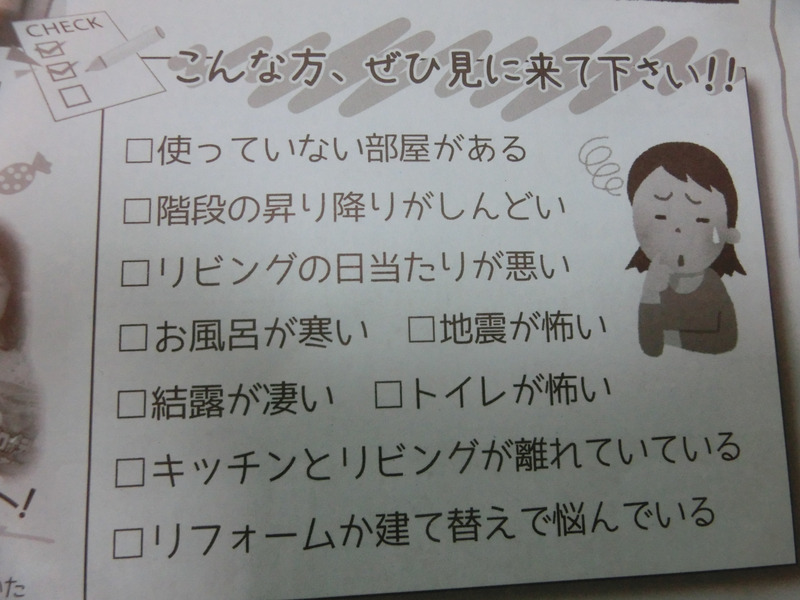 CHECK
こんな方、ぜひ見に来て下さい!!
□使っていない部屋がある
□階段の昇り降りがしんどい
□リビングの日当たりが悪い
□お風呂が寒い □地震が怖い
□結露が凄い □トイレが怖い
□キッチンとリビングが離れていている
□リフォームか建て替えで悩んでいる